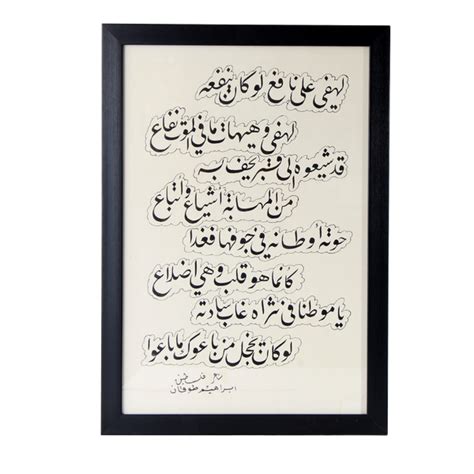 لهفي على نافع لو كان ينفعه
لهفي وهيهات ما في الموت نفاع
قد شيعوه الى قبر يحف به
من المهابة اشياع واتباع
حوته اوطانه في جوفها فغدا
كانما هو قلب وهي اضلاع
يا موطنا في ثراه غاب سادته
لو كان يخجل من باعوك ما باعوا
شعر فلسطين
ابراهيم طوقان